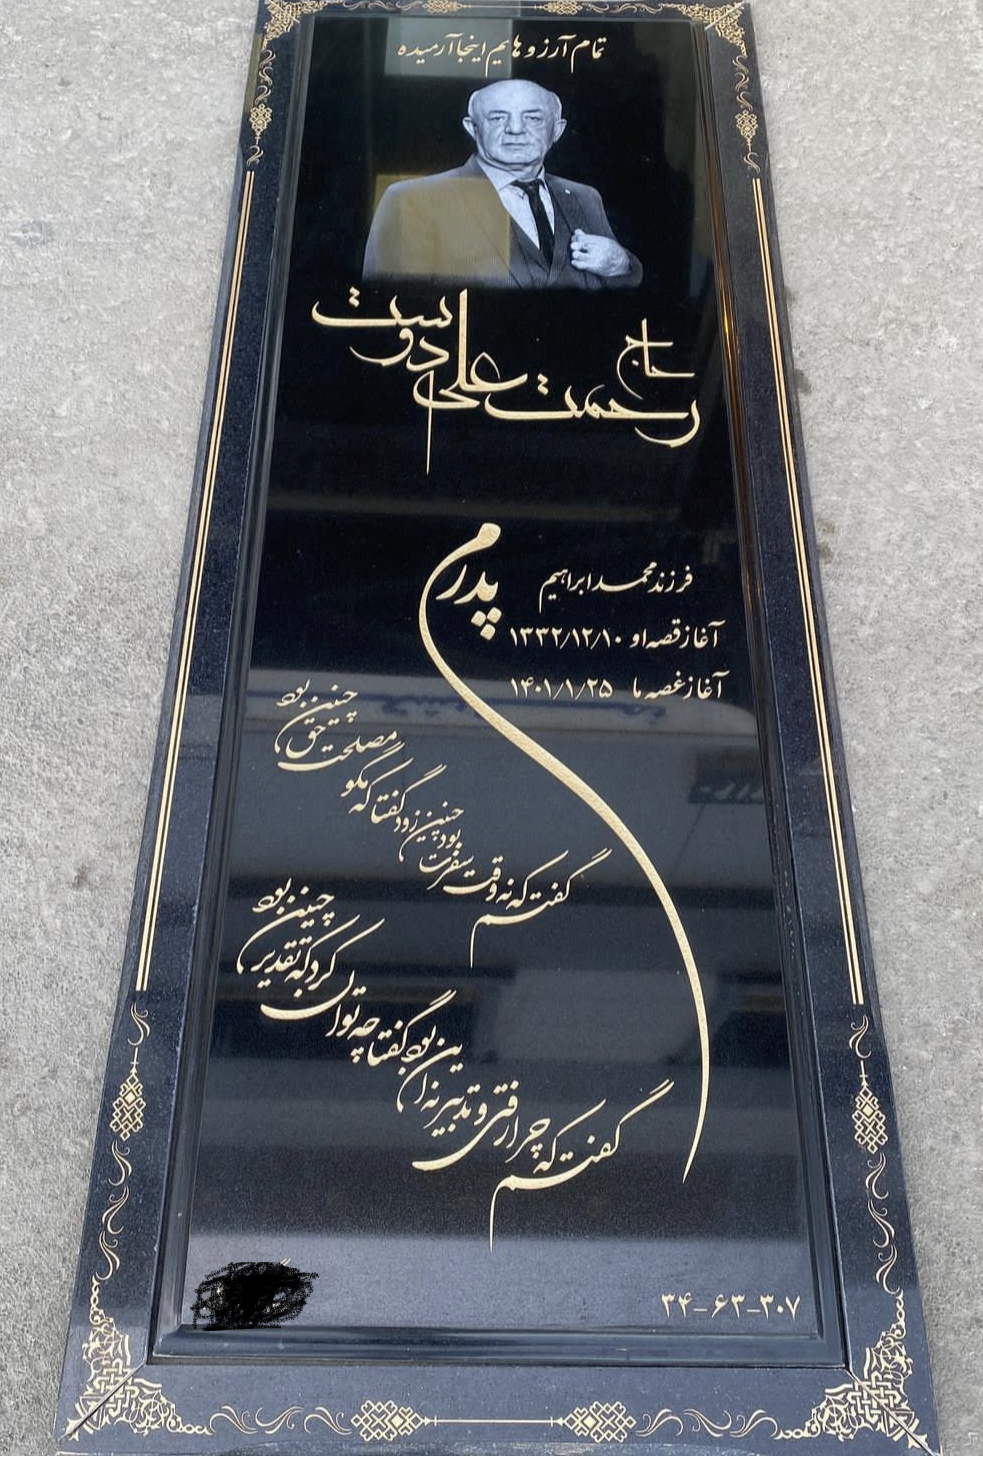 تمام آرزوهایم اینجا آرمیده
حاج
رحمت علی دوست
پدرم
فرزند محمد ابراهیم
آغاز قصه او ۱۳۳۲/۱۲/۱۰
آغاز غصه ما ۱۴۰۱/۱/۲۵
گفتم که نه وقت سفرت بود چنین زود گفتا که مگو مصلحت حق چنین بود
گفتم که چرا رفتی و تدبیر نه این بود گفتا چه توان کرد که تقدیر چنین بود
۳۴-۶۳-۳۰۷